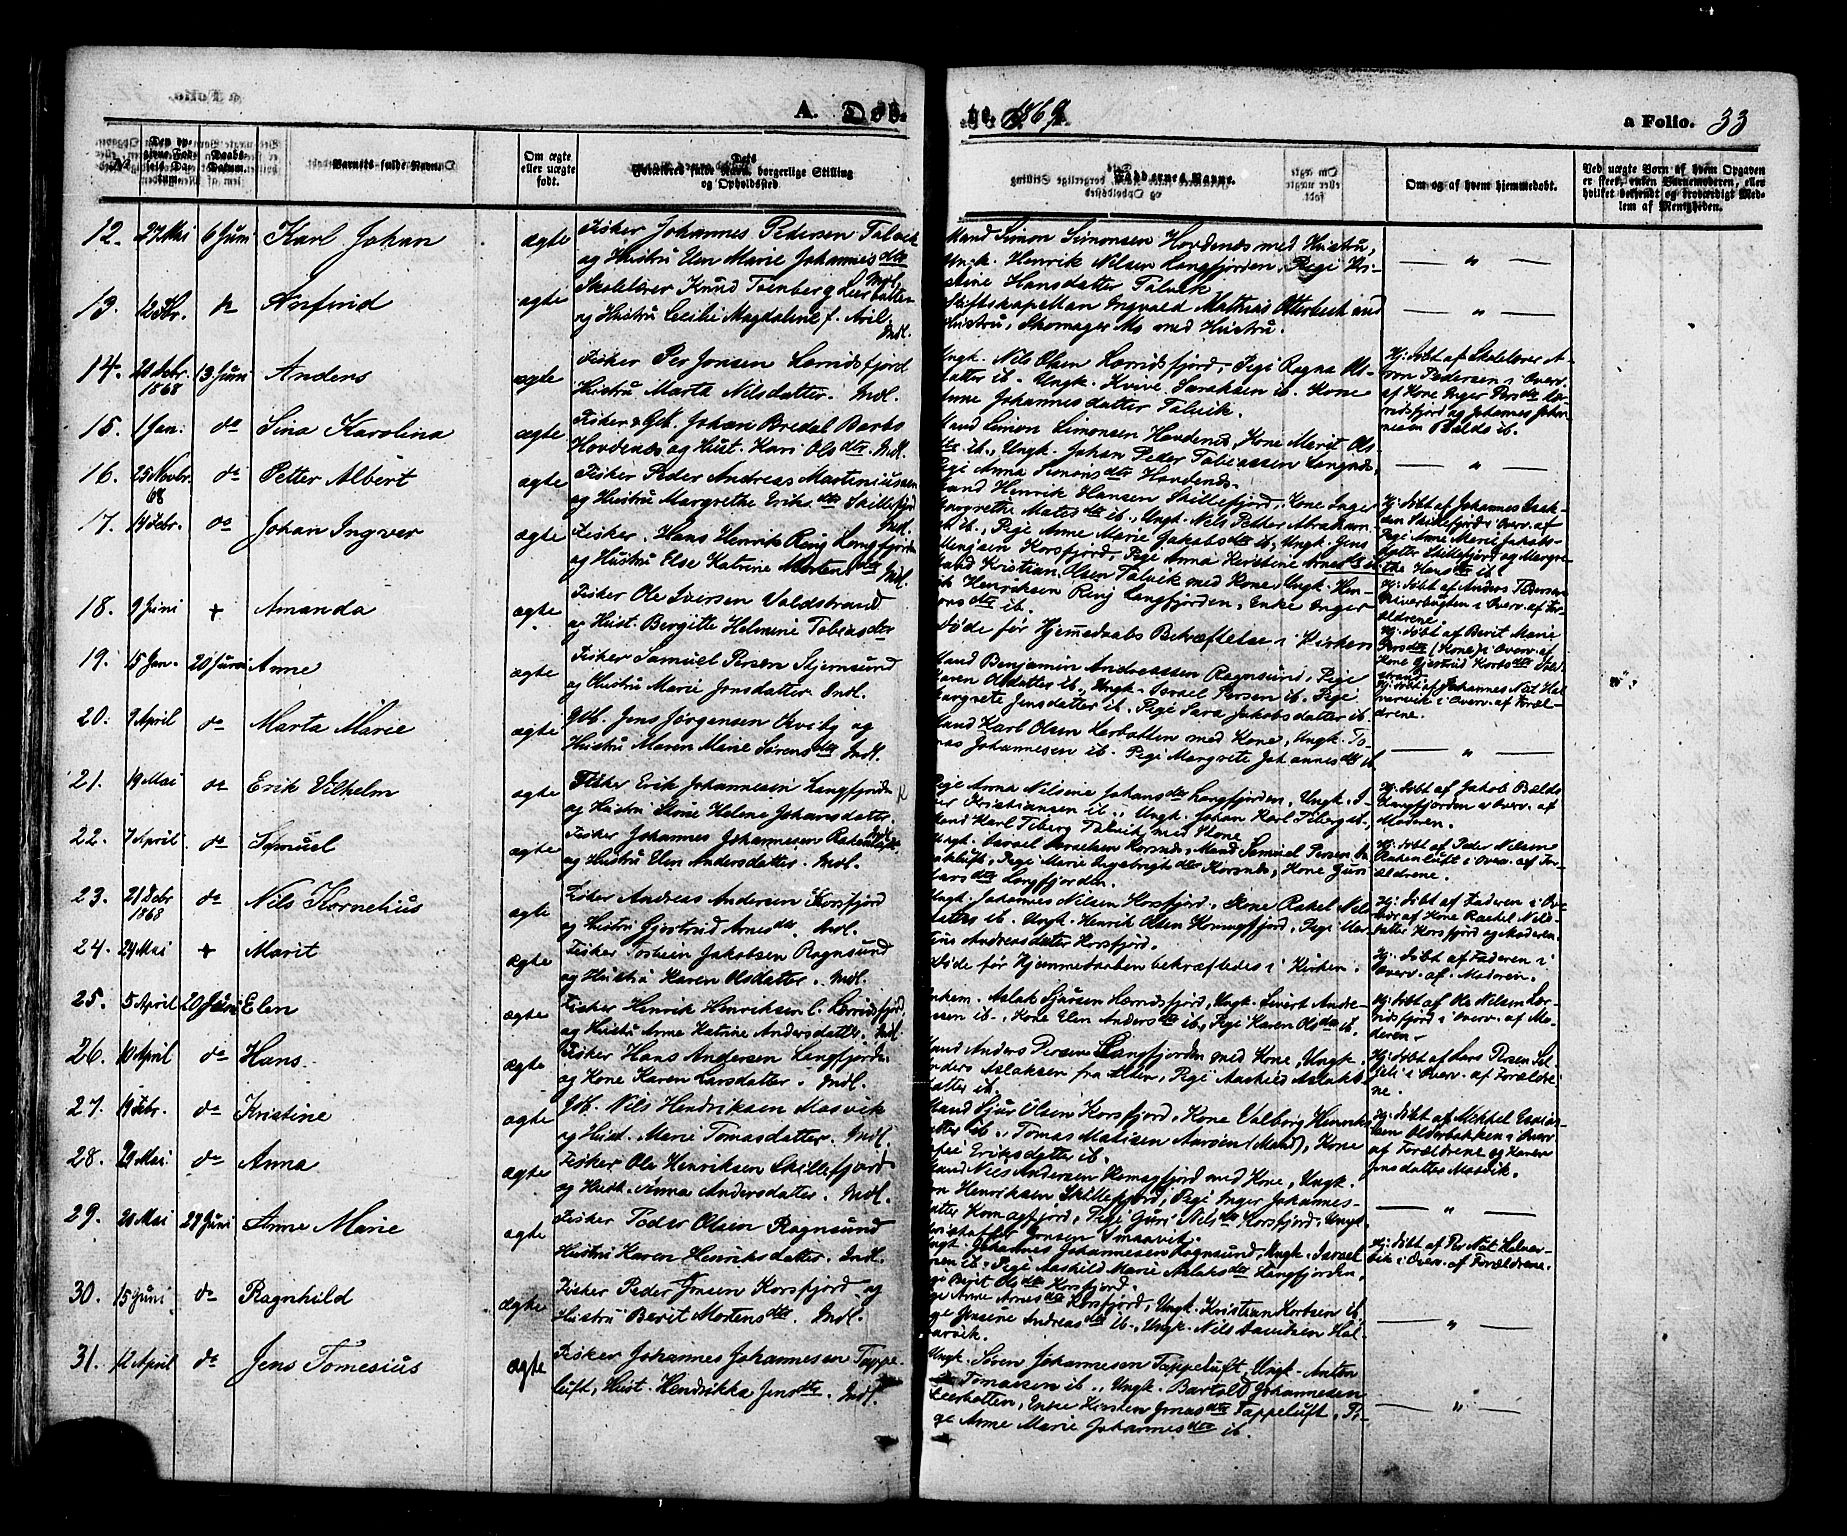 A. Døbte. 1869.
a Folio. 33
No.
Den opgivne Fødsels Datum.
Daabs-Datum.
Barnets fulde Navn.
Om ægte eller uægte født.
Forældres fulde Navn, borgerlige Stilling og Opholdssted.
Faddernes Navne.
Om og af hvem hjemmedøbt.
Ved uægte Børn af hvem Opgaven er skeet, enten Barnemoderen, eller hvilket bekendt og troværdigt Medlem af Menigheden.
12. 27 Mai 6 Juni Karl Johan ægte Fisker Johannes Pedersen Talvik
og Hustru Elen Marie Johannesdtr Indl.
Mand Simon Simonsen Hovdenes med Hustru,
Ungk. Henrik Nilsen Langfjorden, Pige Kri-
stine Hansdatter Talvik
— " —
13. 12 Fbr. Anfinid ægte Skolelærer Knud Lerbatten
og Hustru Cecilie Magdalene f. Indl.
Stiftskapellan Ingvald Mathias Otterbech med
Hustru, Skomager Mo med Hustru.
— " —
14. 20 Debr. 1868 13 Juni Anders ægte Fisker Per Jonsen Lerridsfjord
Hustru Marta Nilsdatter. Indl.
Ungk. Nils Olsen Lerridsfjord, Pige Ragna Ols-
datter ib. Ungk. Kvive Saraksen ib. Kone
Anne Johannesdatter Talvik.
Hj: døbt af Skolelærer A-
ron Pedersen i Overv.
af Kone Inger Persdtr Ler-
ridsfjord og Johannes Johan-
nesen ib.
15. 1 Jan: do Lina Karolina ægte Fisker & Gbr. Johan Bredal Barbo
Hovdenes og Hust. Kari Olsdtr. Indl.
Mand Simon Simonsen Hovdenes, Kone Marit Ols-
dtr ib., Ungk. Johan Peder Tobiassen Langnes,
Pige Anna Simonsdtr Hovdenes.
— " —
16. 25 Novbr. 68 do Petter Albert ægte Fisker Peder Andreas Martiniussen
og Hustru Margrethe Eriksdtr Skillefjord Indl.
Mand Henrik Hansen Skillefjord, Kone Inger
Margrethe Matesdtr ib., Ungk. Nils Petter Abraham-
ib., Pige Anne Marie Jakobsdtr ib.,
Hj: døbt af Johannes Isak-
sen Skillefjord i Overv. af
Pige Anne Marie Jakobs-
datter Skillefjord og Margre-
the Hansdtr ib.
17. 14 Febr. do Johan Ingver ægte Fisker Hans Henrik Ring Langfjorden
og Hustru Else Katrine Mortensdtr Indl.
Mand Kristian Olsen Talvik med Kone, Ungk. Hen-
rik Henriksen Ring Langfjorden, Enke Inger
ib.
Hj: døbt af Anders Pedersen
i Overv. af For-
ældrene.
18. 9 Juni + Amanda ægte Fisker Ole Iversen Valdstrand
og Hust. Bergitte Helmine Tobiasdtr
Døde før Hjemmedaabs Bekræftelse i Kirken
Hj: døbt af Berit Marie
Persdtr (Kone) i Overv. af
Kone Gjertrud Kortsdtr
strand.
19. 15 Jan. 20 Juni Anne ægte Fisker Samuel Persen Stjernsund
og Hustru Marie Jonsdatter Indl.
Mand Benjamin Andreassen Rognsund, Pige
Karen Olsdatter ib., Ungk. Israel Persen ib. Pige
Margrete Jensdatter ib. Pige Sara Jakobsdatter ib.
Hj: døbt af Johannes Nøt Hal-
vervik i Overv. af Foræl-
drene.
20. 9 April do Marta Marie ægte Gbr. Jens Jørgensen Kviby og
Hustru Maren Marie Sørensdtr Indl.
Mand Karl Olsen Lerbatten med Kone, Ungk. To-
mas Johannesen ib. Pige Margrete Johannesdtr ib.
— " —
21. 19 Mai do Erik Vilhelm ægte Fisker Erik Johannesen Langfjorden
og Hustru Stine Helene Johansdatter. Indl.
Pige Anna Nilsine Johansdtr Langfjorden, Ungk. I-
ver Kristiansen ib., Ungk. Johan Karl Fiberg ib.,
Mand Karl Fiberg Talvik med Kone
Hj: døbt af Jakob Bælds
Langfjorden i Overv. af
Moderen.
22. 7 April do Samuel ægte Fisker Johannes Johannesen Rakenluft
og Hustru Elen Andersdatter. Indl.
Ungk. Israel Korsnes, Mand Samuel Persen
Pige Marie Ingebrigtsdtr Korsnes, Kone Guri
Larsdtr Langfjorden.
Hj: døbt af Peder Nilsen
Rakenluft i Overv. af For-
ældrene.
23. 21 Debr 1868 do Nils Kornelius ægte Fisker Andreas Andersen Korsfjord
og Hustru Gjertrud Arnesdtr. Indl.
Ungk. Johannes Nilsen Korsfjord, Kone Rakel Nils-
datter ib. Ungk. Henrik Olsen Komagfjord, Pige Mar-
tine Andreasdatter Korsfjord.
Hj: døbt af Faderen i Ove-
rv af Kone Raehel Nils-
datter Korsfjord og Moderen.
24. 24 Mai + Marit ægte Fisker Tostein Jakobsen Rognsund
og Hustru Karen Olsdatter. Indl.
Døde før Hjemmedaaben bekræftedes i Kirken.
Hj: døbt af Faderen i
Overv. af Moderen.
25. 5 April 20 Juni Elen ægte Fisker Henrik Henriksen l. Lerridsfjord
og Hustru Anne Katrine Andersdatter. Indl.
Enkem. Aslak Sjursen Lerridsfjord, Ungk. Sivert Andre-
sen ib., Kone Elen Andersdtr ib., Pige Karen Olsdtr ib.
Hj: døbt af Ole Nilsen Ler-
ridsfjord i Overv. af Mo-
deren.
26. 10 April do Hans. ægte Fisker Hans Andersen Langfjorden
og Kone Karen Larsdatter. Indl.
Mand Anders Persen Langfjorden med Kone, Ungk.
Anders Aslaksen fra Alten, Pige Aashild Aslaks-
datter ib.
Hj: døbt af Lars Persen
i Overv. af Forældre-
ne.
27. 19 Febr. do Kristine ægte Gbr. Nils Hendriksen Masvik
og Hust. Marie Tomasdatter. Indl.
Mand Sjur Olsen Korsfjord, Kone Valborg Henriks-
datter ib., Tomas Matisen Aarøen (Mand), Kone
Eriksdatter ib.
Hj: døbt af Mikkel
i Overv
af Forældrene og Karen
Jensdatter Masvik.
28. 29 Mai do Anna ægte Fisker Ole Henriksen Skillefjord
og Hust. Anna Andersdatter. Indl.
Mand Nils Andersen Komagfjord med Kone, Ungk.
Henriksen Skillefjord, Pige Inger Johannes-
datter Komagfjord, Pige Guri Nilsdtr Korsfjord, Ungk.
Kristoffer Jonsen Smaavik.
— " —
29. 20 Mai 27 Juni Anne Marie ægte Fisker Peder Olsen Rognsund
Hustru Karen Henriksdatter. Indl.
Ungk. Johannes Johannesen Rognsund, Ungk. Israel
ib., Pige Aashild Marie Aslaksdtr Langfjorden,
Pige Berit Olsdtr Korsfjord.
Hj: døbt af Per Nøt Halver-
vik i Overv. af Forældrene.
30. 15 Juni do Ragnhild ægte Fisker Peder Jonsen Korsfjord og
Hustru Berit Mortensdtr. Indl.
Pige Anne Arnesdtr Korsfjord, Ungk. Kristian Kortsen ib.
Pige Jensine Andreasdtr ib., Ungk. Nils Davidsen Hal-
varvik.
— " —
31. 12 April do Jens Tomesius ægte Fisker Johannes Johannesen Tappe-
luft, Hust. Hendrikka Jensdtr. Indl.
Ungk. Søren Johannesen Tappeluft, Ungk. Anton
Tomassen ib., Ungk. Bartold Johannesen
Leerbotten, Enke Kirsten Jonasdtr Tappeluft, Pi-
ge Anne Marie Johannesdtr ib.
— " —